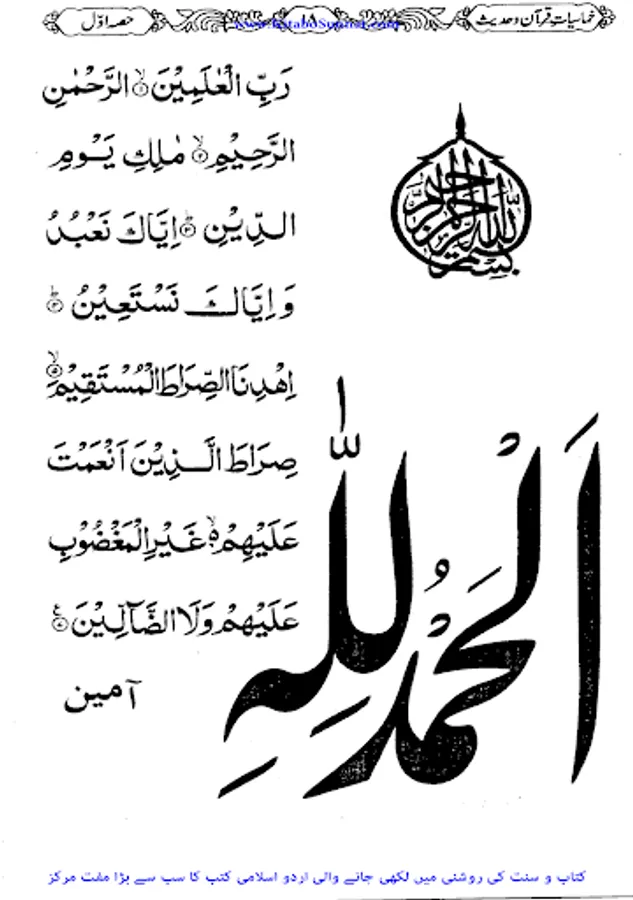 خمائیات قرآن و حدیث
www.KitaboSunnat.com
حصہ اوّل
بِسْمِ اللّٰهِ الرَّحْمٰنِ الرَّحِيْمِ
اَلْحَمْدُ لِلّٰهِ
رَبِّ الْعٰلَمِيْنَ ۙ۱ الرَّحْمٰنِ
الرَّحِيْمِ ۙ۲ مٰلِكِ يَوْمِ
الدِّيْنِ ؕ۳ اِيَّاكَ نَعْبُدُ
وَاِيَّاكَ نَسْتَعِيْنُ ؕ۴
اِهْدِنَا الصِّرَاطَ الْمُسْتَقِيْمَ ۙ۵
صِرَاطَ الَّذِيْنَ اَنْعَمْتَ
عَلَيْهِمْ ۙ۶ غَيْرِ الْمَغْضُوْبِ
عَلَيْهِمْ وَلَا الضَّآلِّيْنَ ۷
آمین
کتاب و سنت کی روشنی میں لکھی جانے والی اردو اسلامی کتب کا سب سے بڑا مفت مرکز